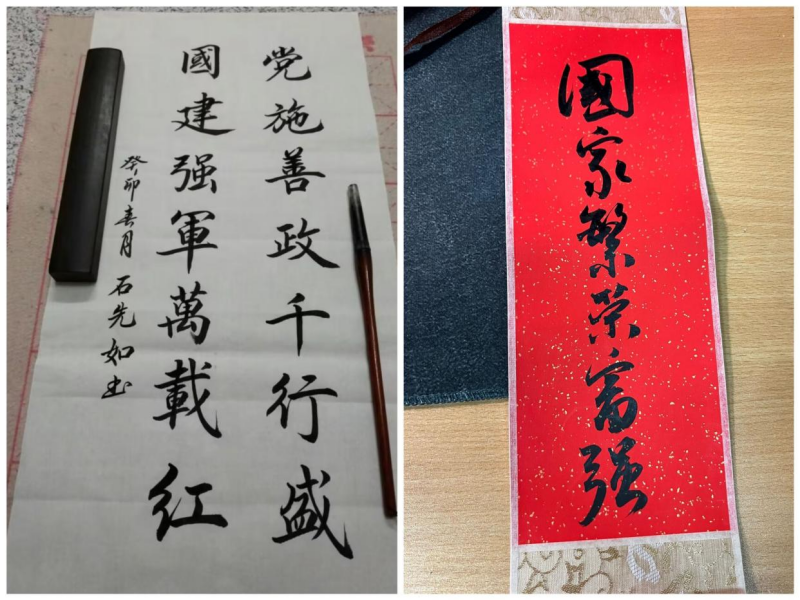 党施善政千行盛
國建强軍萬載红
癸卯春月 石先如书
國家繁荣富强